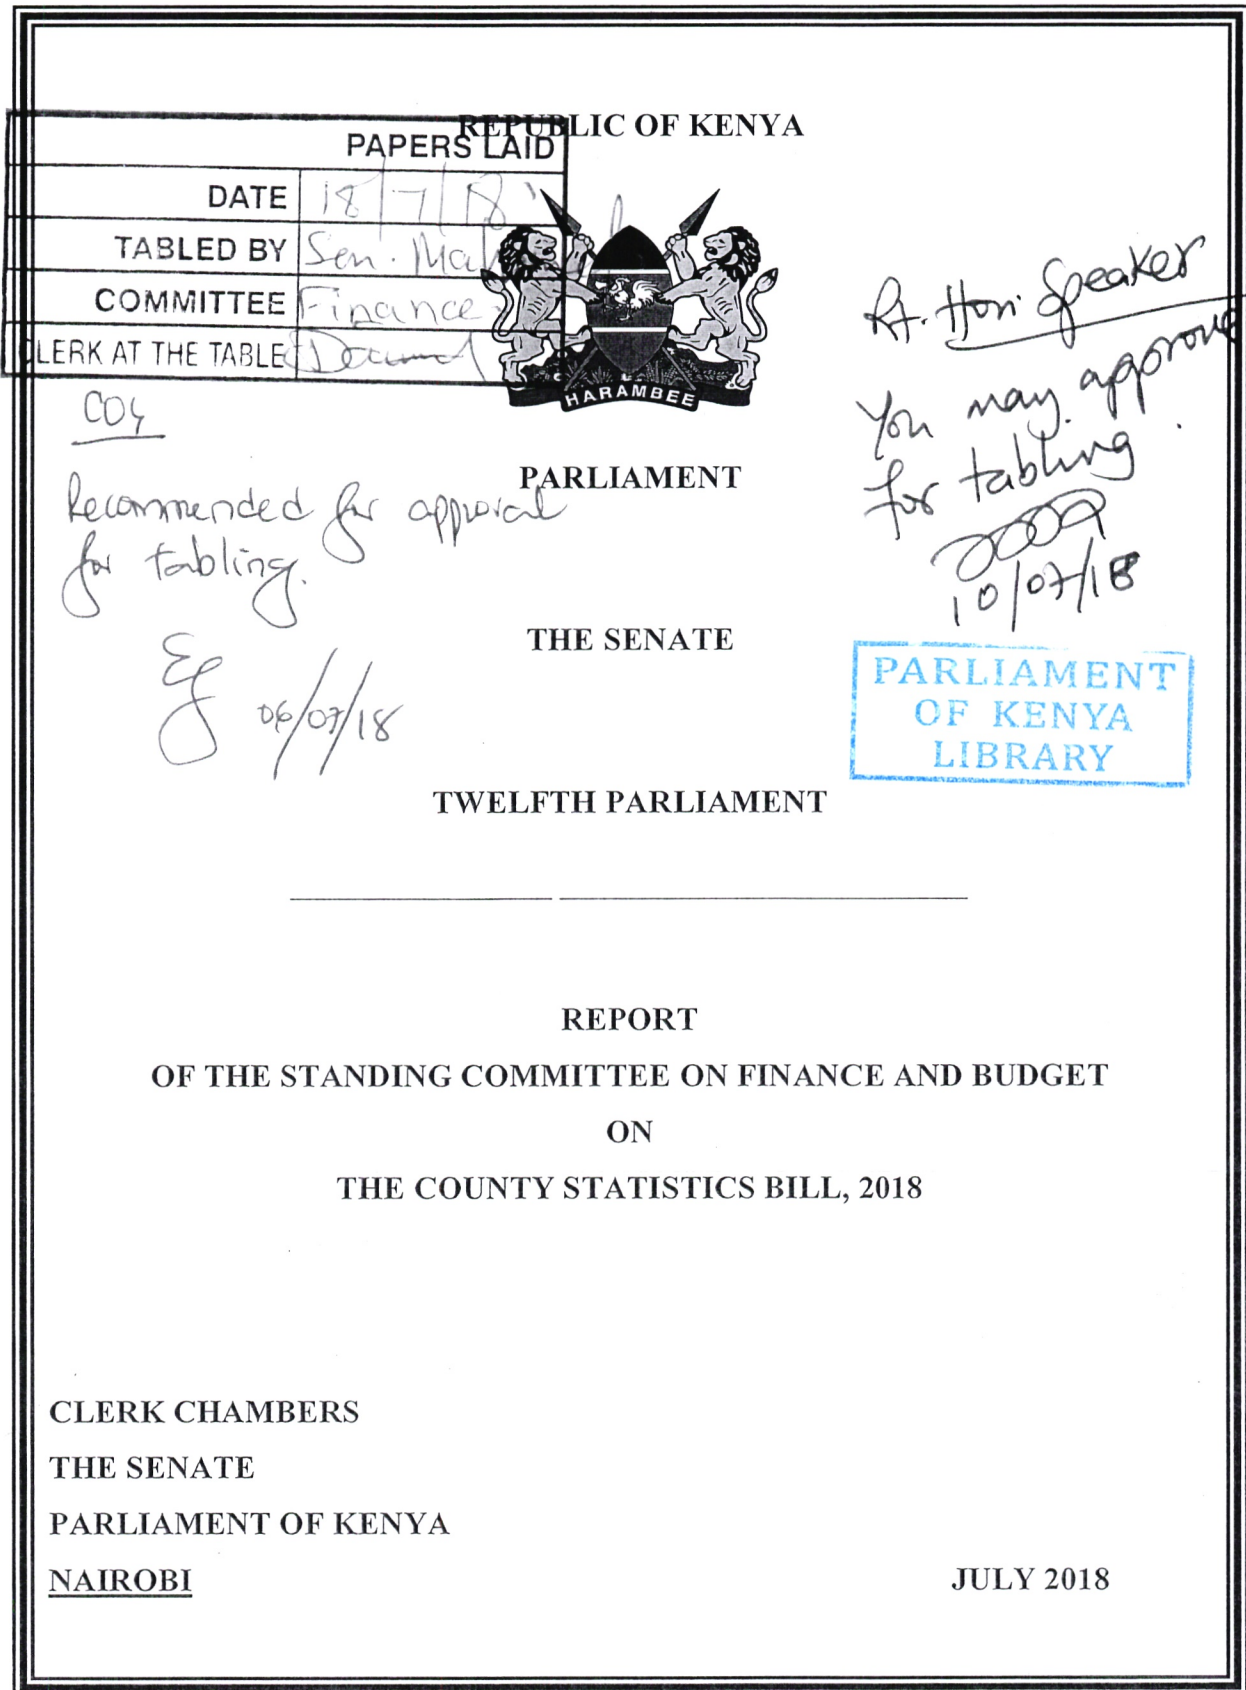 REPUBLIC OF KENYA
PAPERS LAID
DATE 18/7/18
TABLED BY Sen.
COMMITTEE Finance
CLERK AT THE TABLE
HARAMBEE
Rt. Hon. Speaker
You may approve
for tabling.
10/07/18
Recommended for approval
for tabling.
06/07/18
PARLIAMENT
THE SENATE
PARLIAMENT
OF KENYA
LIBRARY
TWELFTH PARLIAMENT
REPORT
OF THE STANDING COMMITTEE ON FINANCE AND BUDGET
ON
THE COUNTY STATISTICS BILL, 2018
CLERK CHAMBERS
THE SENATE
PARLIAMENT OF KENYA
NAIROBI
JULY 2018